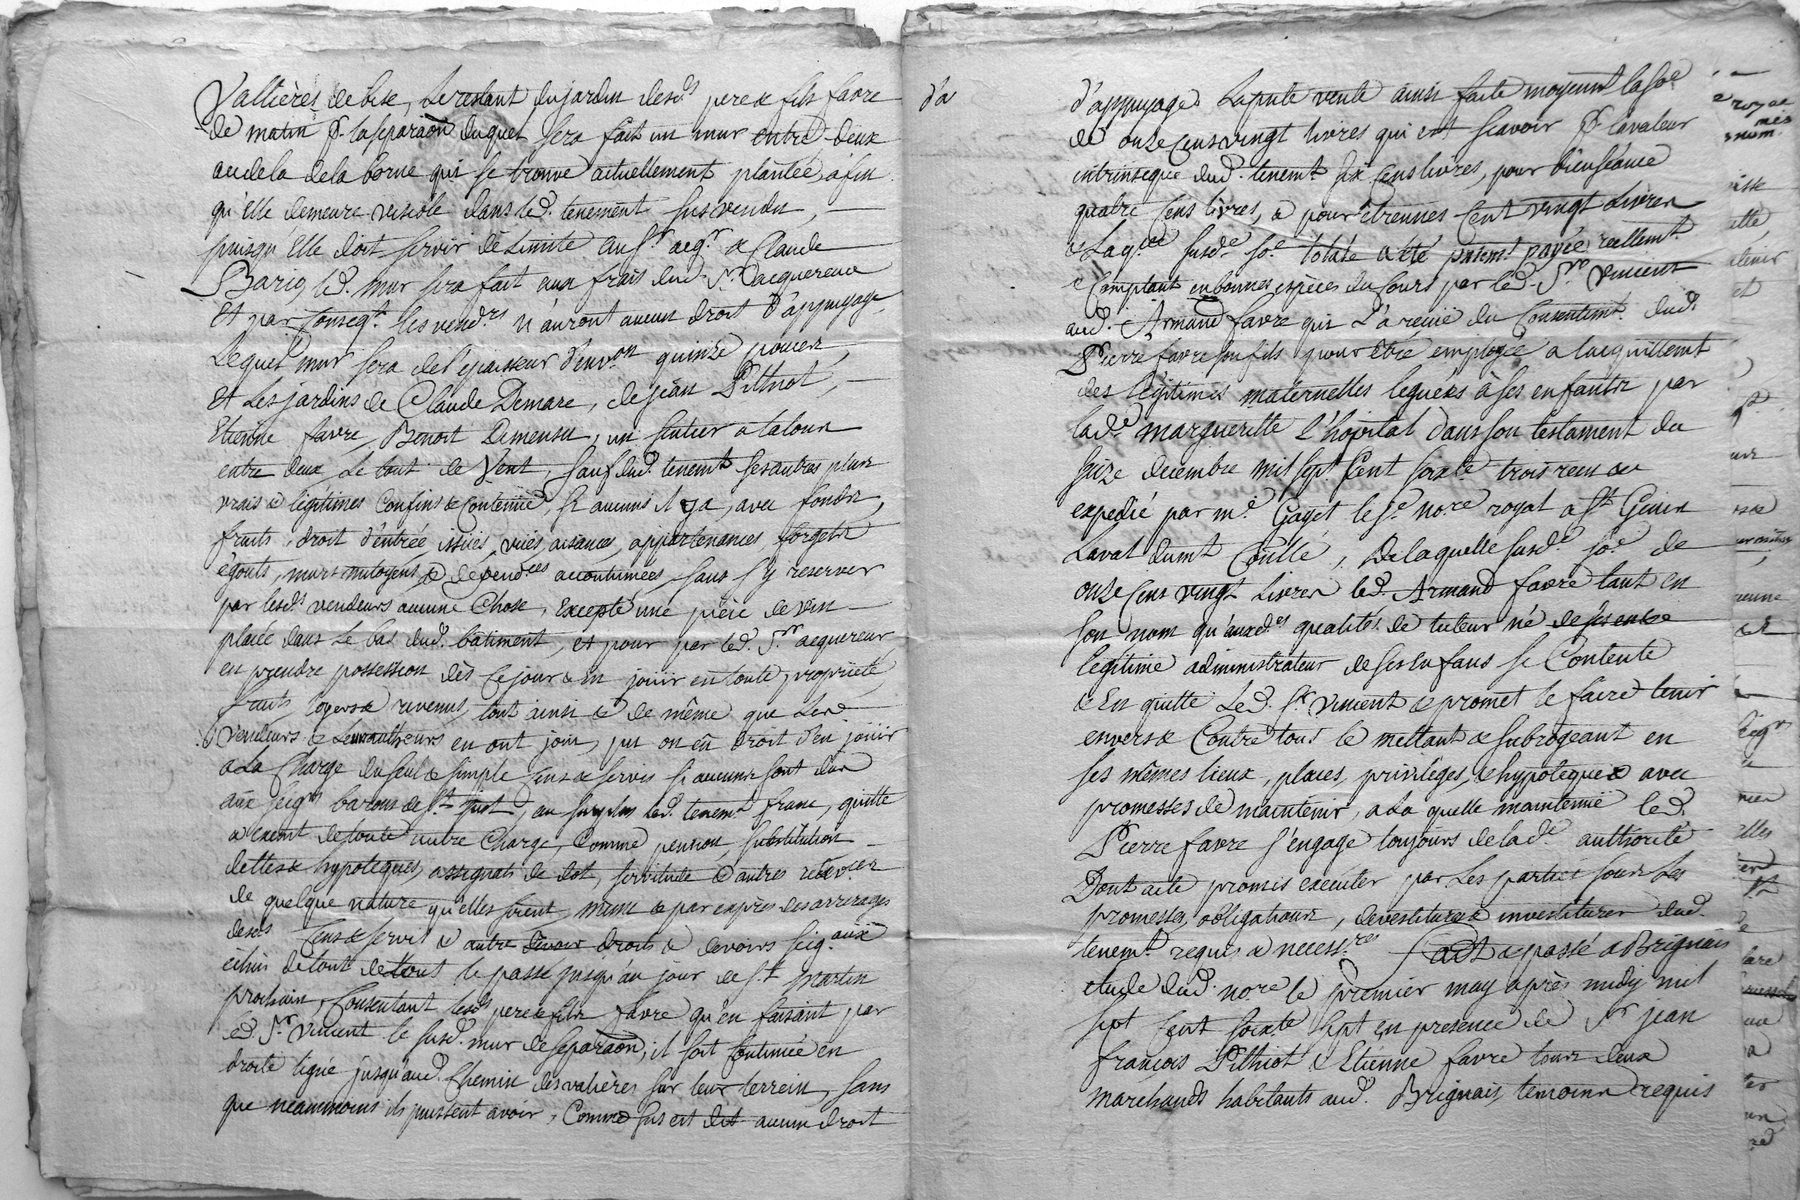 Vallières de bise, Le restant du jardin desds pere & fils favre
de matin pr laseparaõn duquel sera fait un mur entre deux
audela dela borne qui se trouve actuellement plantée, afin
qu'elle demeure visible dans led. tenement sus vendu,
puisqu'Elle doit servir de Limite au Sr acqr & Claude
Bario, led. mur sera fait aux frais dud. Sr. acquereur
Et par Conseqt. les vendrs n'auront aucun droit d'appuyage,
Lequel mur sera de l'epaisseur d'envon quinze pouces,
Et Les jardins de Claude Demare, de jean Pithiot,
Etienne favre, Benoit Dimensu, un sentier a talour
entre deux Le tout de Vent, sauf dud. tenemt ses autres plus
vrais & légitimes Confins & Contenuë, si aucuns il y a, avec fonds,
fruits, droit d'éntrée, issuës, vuës, aisances, appartenances forgets
égouts, murs mitoyens, & dépendces accoutumées sans s'y reserver
par lesds vendeurs aucune Chose, Excepté une pièce de vin
placée dans Le bas dud. batiment, et pour par led. Sr. acquereur
en prendre possession dès Ce jour & en jouir en toute proprieté
fruits, loyers & revenus, tout ainsi & de même que Lesd.
vendeurs & Leurs autheurs en ont joui, pu ou eû droit d'en joüir
a La Charge du seul & simple Cens & servis si aucuns sont dus
aux seigrs barons de St. just, au surplus led. tenemt franc, quitte
& exemt de toute autre Charge, Comme pension, substitution
dettes & hypoteques, assignats de dot, servitude & autres
de quelque nature qu'elles soient, meme & par exprès des arrerages
desds Cens & servis & autre Devoir droits & devoirs seig.aux
echus de tout le passé jusqu'au jour de St. Martin
prochain, Consentant lesds pere & fils favre qu'en faisant par
led. Sr. Vincent le susd. mur de separaõn, il soit continuë en
droite ligne jusqu'aud. Chemin des valières sur leur terrein, sans
que neammoins ils puissent avoir, Comme sus est dit aucun droit
d'a
d'appuyage. La pnte vente ainsi faite moyenant la soe
de onze Cens vingt livres qui est scavoir pr la valeur
intrinseque dud. tenemt six Cens livres, pour bienséance
quatre Cens livres, & pour étrennes Cent vingt Livres
& Laqlle susde. soe. totale a été pntemt payée reellemt.
& Comptant en bonnes espèces du Cours par led. Sr. Vincent
aud. Armand favre qui L'a reçuë du Consentemt. dud.
Pierre favre son fils pour Etre employée a l'acquittemt
des légitimes maternelles leguées à ses enfants par
lade. margueritte l'hopital dans son testament du
seize decembre mil sept Cent soixte. trois reçu &
expedié par me. Gayet le Je. nore. royal a St. Genis
Laval dumt Côllé, De laquelle susde. soe. de
onze Cens vingt Livres led. Armand favre tant en
son nom qu'auxdes. qualités de tuteur né
legitime administrateur de ses enfans se Contente
& En quitte Led. Sr. Vincent & promet le faire tenir
envers & Contre tous le mettant & subrogeant en
ses mêmes lieux, places, privileges, & hypoteques avec
promesses de maintenir, a La quelle maintenuë led.
Pierre favre s'engage toujours de lade. authorité
Dont acte promis executer par Les parties sous Les
promesses, obligations, devestitures & investitures dud.
tenemt. requis & necessres. Fait & passé a Brignais
etude dud. nore. le premier may après midy mil
sept Cent soixte. sept, en presence de Sr. jean
françois Pithiot & Etienne favre tous deux
marchands habitants aud. Brignais, temoins requis